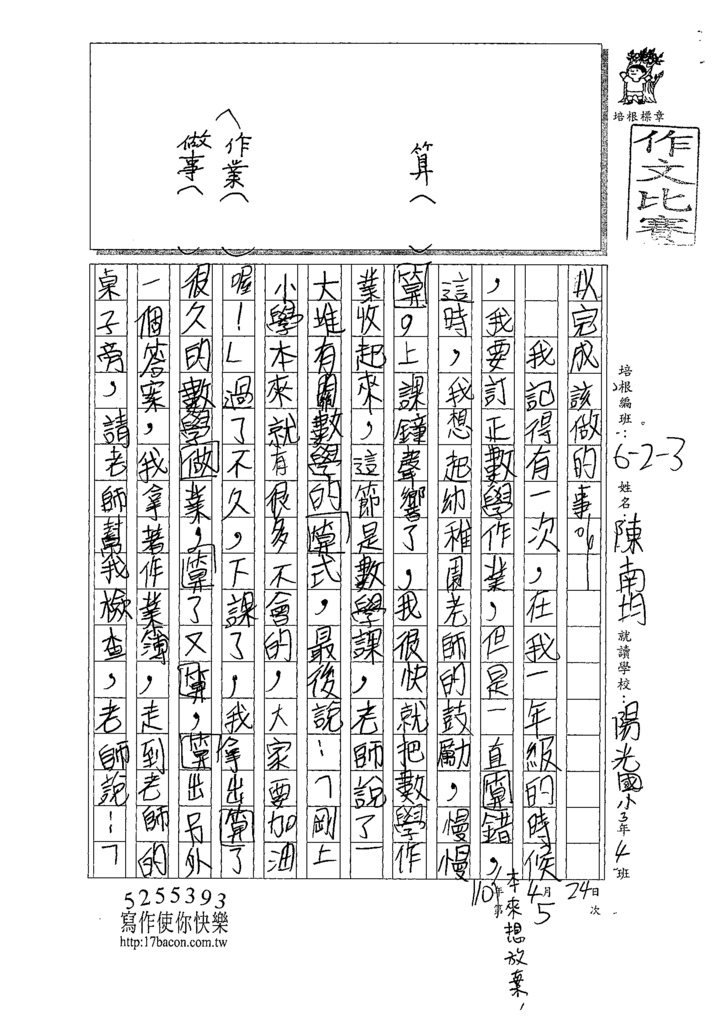 培根標章
作文比賽
培根編班：6-2-3 姓名：陳南均 就讀學校：陽光國小3年4班
110年4月24日
第5次
算（
（作業（
做事（
以完成該做的事。」
我記得有一次，在我一年級的時候
，我要訂正數學作業，但是一直算錯，
本來想放棄，
這時，我想起幼稚園老師的鼓勵，慢慢
算。上課鐘聲響了，我很快就把數學作
業收起來，這節是數學課，老師說了一
大堆有關數學的算式，最後說：「剛上
小學本來就有很多不會的，大家要加油
喔！」過了不久，下課了，我拿出算了
很久的數學做業，算了又算，算出另外
一個答案，我拿著作業簿，走到老師的
桌子旁，請老師幫我檢查，老師說：「
5255393
寫作使你快樂
http:17bacon.com.tw